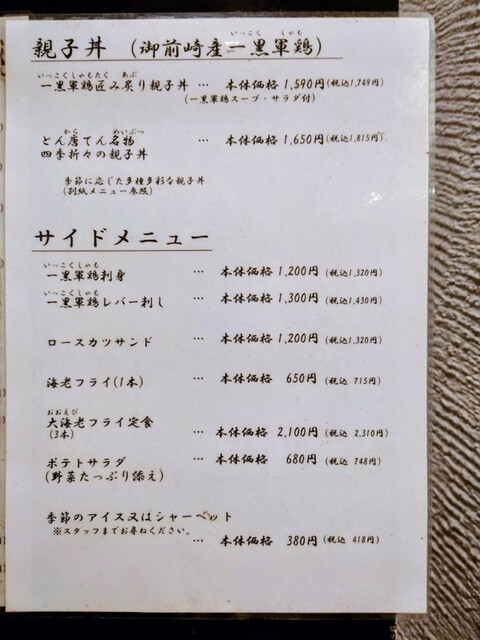 親子丼 (御前崎産一黒軍鶏)
いっこく しゃも
一黒軍鶏匠み炙り親子丼 … 本体価格 1,590円(税込1,749円)
いっこくしゃもたく あぶ
(一黒軍鶏スープ・サラダ付)
とん唐てん名物
から めいぶつ
四季折々の親子丼 … 本体価格 1,650円(税込1,815円)
季節に応じた多種多彩な親子丼
(別紙メニュー参照)
サイドメニュー
いっこくしゃも
一黒軍鶏刺身 … 本体価格 1,200円(税込1,320円)
いっこくしゃも
一黒軍鶏レバー刺し … 本体価格 1,300円(税込1,430円)
ロースカツサンド … 本体価格 1,200円(税込1,320円)
海老フライ(1本) … 本体価格 650円(税込 715円)
おおえび
大海老フライ定食
(3本) … 本体価格 2,100円(税込 2,310円)
ポテトサラダ … 本体価格 680円(税込 748円)
(野菜たっぷり添え)
季節のアイス又はシャーベット
※スタッフまでお尋ねください。
… 本体価格 380円(税込 418円)